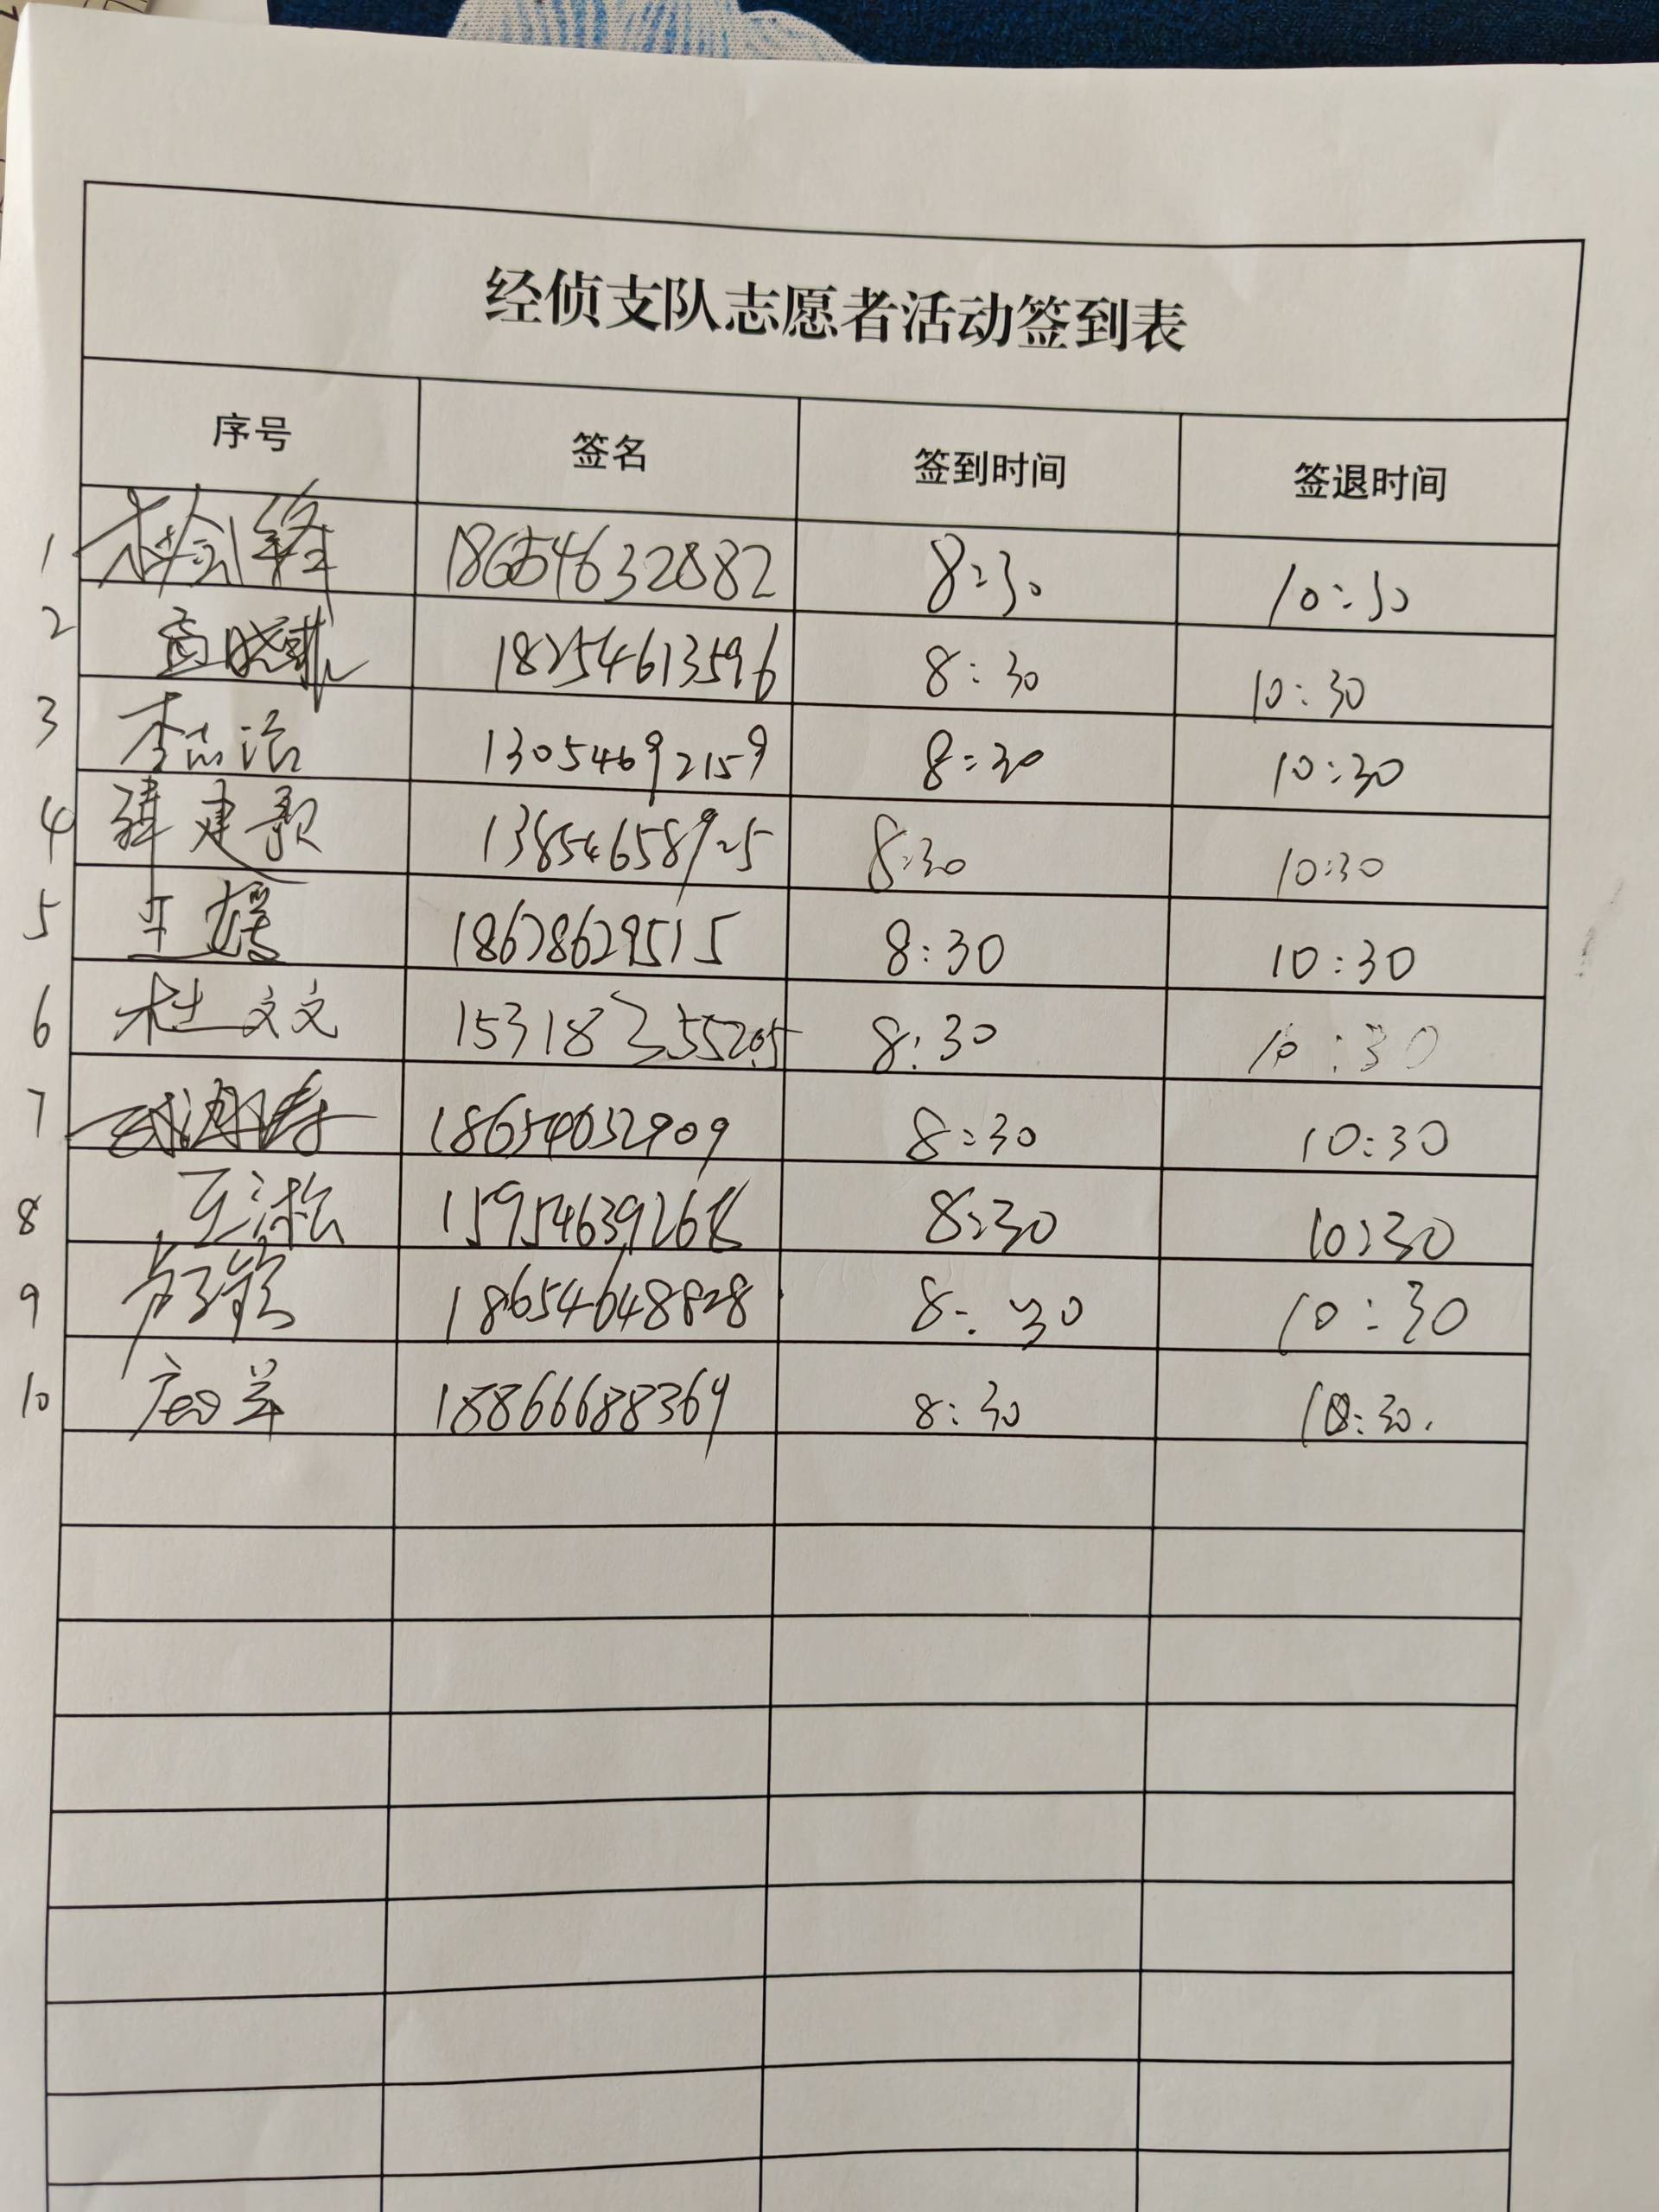 经侦支队志愿者活动签到表
序号 签名 签到时间 签退时间
1 18654632882 8:30 10:30
2 18254613596 8:30 10:30
3 李志浩 13054692159 8:30 10:30
4 薛建歌 13854658925 8:30 10:30
5 王媛 18678629515 8:30 10:30
6 杜文文 8:30 10:30
7 8:30 10:30
8 王洪松 8:30 10:30
9 18654648828 8:30 10:30
10 18866688369 8:30 10:30.